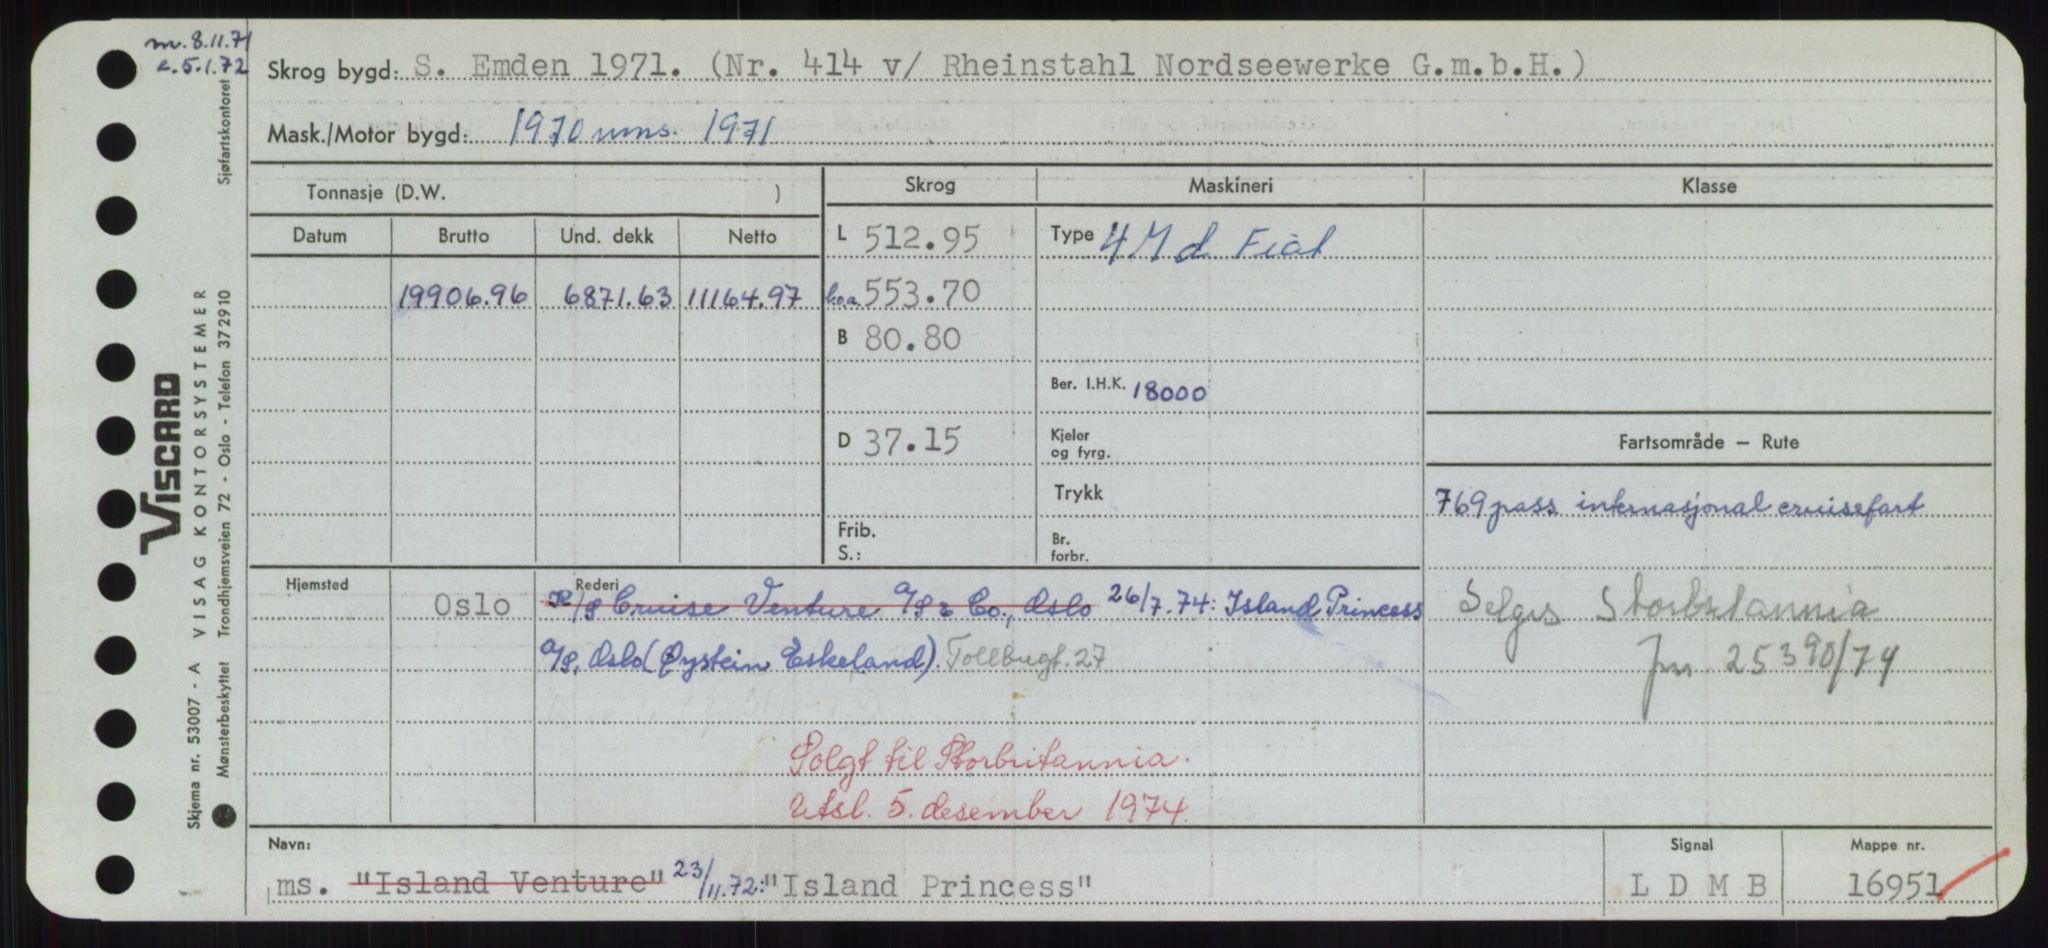 m. 8.11.71
e. 5.1.72
Skrog bygd: S. Emden 1971. (Nr. 414 v/ Rheinstahl Nordseewerke G.m.b.H.)
Mask./Motor bygd: 1970 mms. 1971
Tonnasje (D.W. )
Skrog Maskineri Klasse
Datum Brutto Und. dekk Netto
L 512.95 Type 4 M d Fiat
19906.96 6871.63 11164.97 l.o.a. 553.70
B 80.80
Ber. I.H.K. 18000
D 37.15 Kjeler og fyrg.
Fartsområde – Rute
Trykk
769 pass. internasjonal cruisefart
Frib.
S.:
Br. forbr.
Hjemsted Rederi
Oslo K/S Cruise Venture A/S & Co., Oslo 26/7.74: Island Princess
Selges Storbritannia
A/S, Oslo (Øystein Eskeland). Tollbugt. 27
jnr 25390/74
Solgt til Storbritannia.
Utsl. 5. desember 1974.
Navn: Signal Mappe nr.
ms. "Island Venture" 23/11.72: "Island Princess" L D M B 16951
Skjema nr. 53007 - A VISAG KONTORSYSTEMER
Mønsterbeskyttet Trondhjemsveien 72 - Oslo - Telefon 372910 Sjøfartskontoret
VISCARD